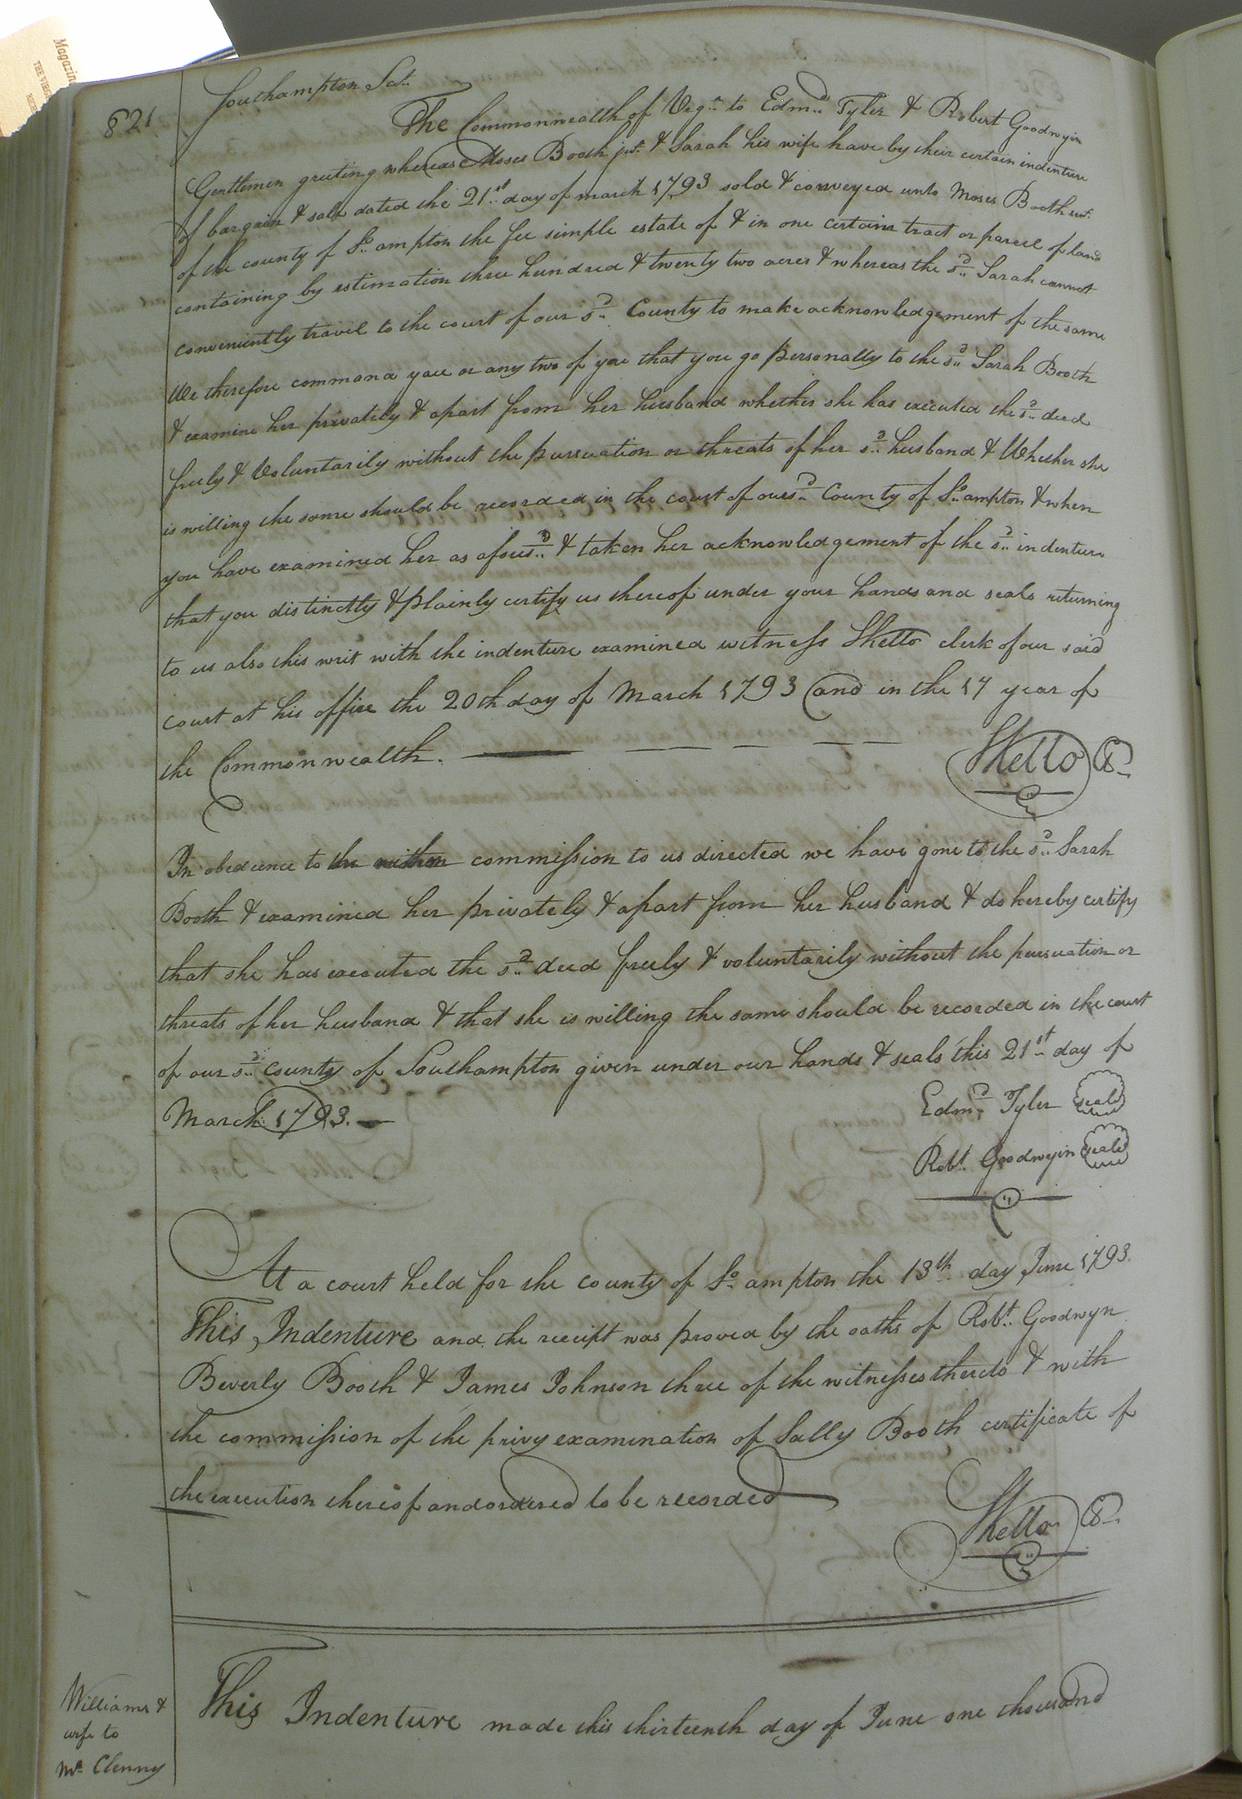 Magazin
THE VIRG
821
Southampton Sct.
The Commonwealth of Virga. to Edmd. Tyler & Robert Goodwyin
Gentlemen greeting whereas Moses Booth jur. & Sarah his wife have by their certain indenture
of bargain & sale dated the 21st day of march 1793 sold & conveyed unto Moses Booth
of the county of So.ampton the fee simple estate of & in one certain tract or parcel of land
containing by estimation three hundred & twenty two acres & whereas the sd. Sarah cannot
conveniently travel to the court of our sd. County to make acknowledgement of the same
We therefore command you or any two of you that you go personally to the sd. Sarah Booth
& examine her privately & apart from her husband whether she has executed the sd. deed
freely & Voluntarily without the pursuation or threats of her sd. husband & Whether she
is willing the same should be recorded in the court of our sd. County of So.ampton & when
you have examined her as afousd. & taken her acknowledgement of the sd. indenture
that you distinctly & plainly certify us thereof under your hands and seals returning
to us also this writ with the indenture examined witness Skelto clerk of our said
court at his office the 20th day of March 1793 and in the 17 year of
the Commonwealth.
Skelto C
In obedience to the within commission to us directed we have gone to the sd. Sarah
Booth & examined her privately & apart from her husband & do hereby certify
that she has executed the sd. deed freely & voluntarily without the pursuation or
threats of her husband & that she is willing the same should be recorded in the court
of our sd. county of Southampton given under our hands & seals this 21st day of
March 1793.
Edmd. Tyler seal
Robt. Goodwyin seal
At a court held for the county of So.ampton the 13th day June 1793.
This Indenture and the receipt was proved by the oaths of Robt. Goodwyn
Beverly Booth & James Johnson three of the witnesses thereto & with
the commission of the privy examination of Sally Booth certificate of
the execution thereof and ordered to be recorded
Skelto C
Williams &
wife to
Mc. Clenny
This Indenture made this thirteenth day of June one thousand